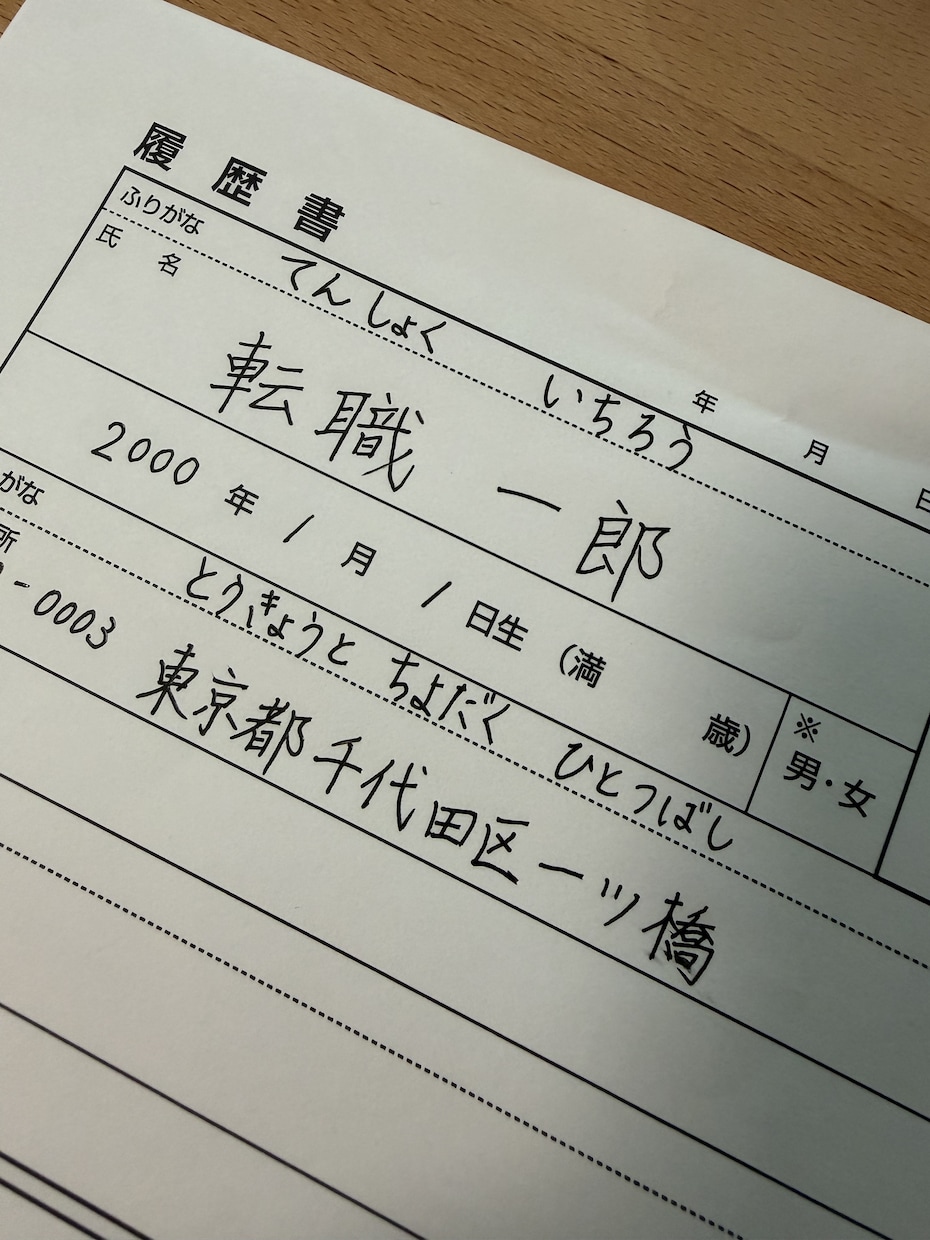 履歴書
年 月 日
ふりがな てんしょく いちろう
氏名 転職 一郎
2000年 1月 1日生 (満 歳) ※男・女
がな とうきょうと ちよだく ひとつばし
所
-0003 東京都千代田区一ツ橋